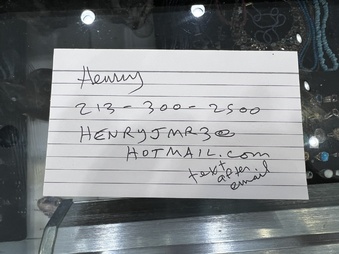 Henry
213-300-2500
HENRYJMR3@
HOTMAIL.com
text
after
email